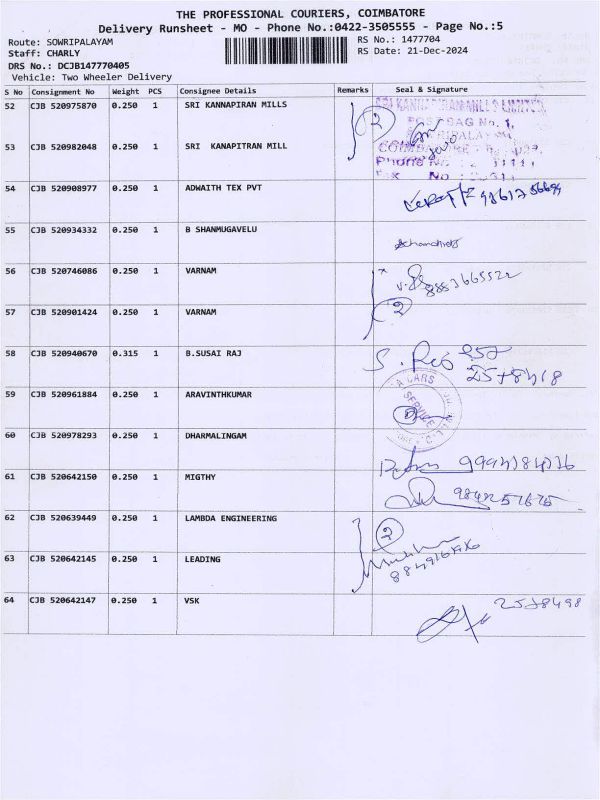 THE PROFESSIONAL COURIERS, COIMBATORE
Delivery Runsheet - MO - Phone No.:0422-3505555 - Page No.:5
Route: SOWRIPALAYAM
RS No.: 1477704
Staff: CHARLY
RS Date: 21-Dec-2024
DRS No.: DCJB147770405
Vehicle: Two Wheeler Delivery
S No Consignment No Weight PCS Consignee Details Remarks Seal & Signature
52 CJB 520975870 0.250 1 SRI KANNAPIRAN MILLS
2
53 CJB 520982048 0.250 1 SRI KANAPITRAN MILL
54 CJB 520908977 0.250 1 ADWAITH TEX PVT
55 CJB 520934332 0.250 1 B SHANMUGAVELU
56 CJB 520746086 0.250 1 VARNAM
57 CJB 520901424 0.250 1 VARNAM
2
58 CJB 520940670 0.315 1 B.SUSAI RAJ
59 CJB 520961884 0.250 1 ARAVINTHKUMAR
CARS
SERVICE
60 CJB 520978293 0.250 1 DHARMALINGAM
61 CJB 520642150 0.250 1 MIGTHY
62 CJB 520639449 0.250 1 LAMBDA ENGINEERING
2
63 CJB 520642145 0.250 1 LEADING
64 CJB 520642147 0.250 1 VSK
2578498